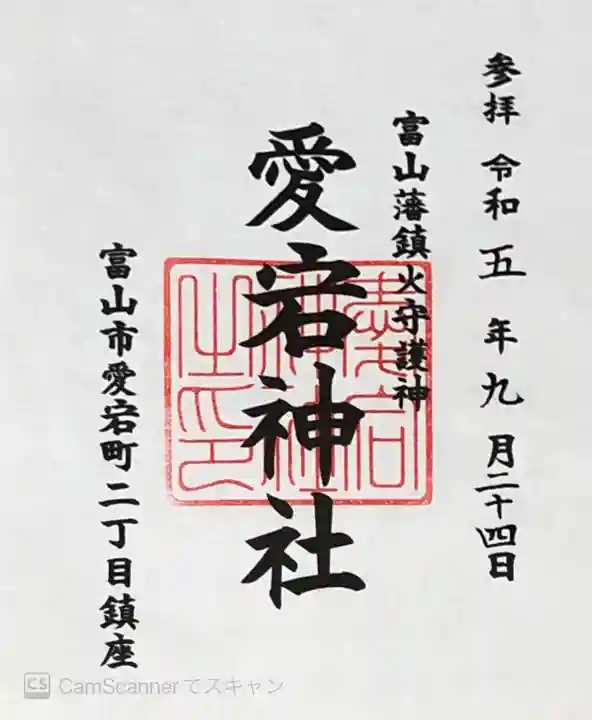 参拝 令和 五 年 九 月二十四日
富山藩鎮火守護神
愛宕神社
愛宕神社之印
富山市愛宕町二丁目鎮座
CS CamScannerでスキャン